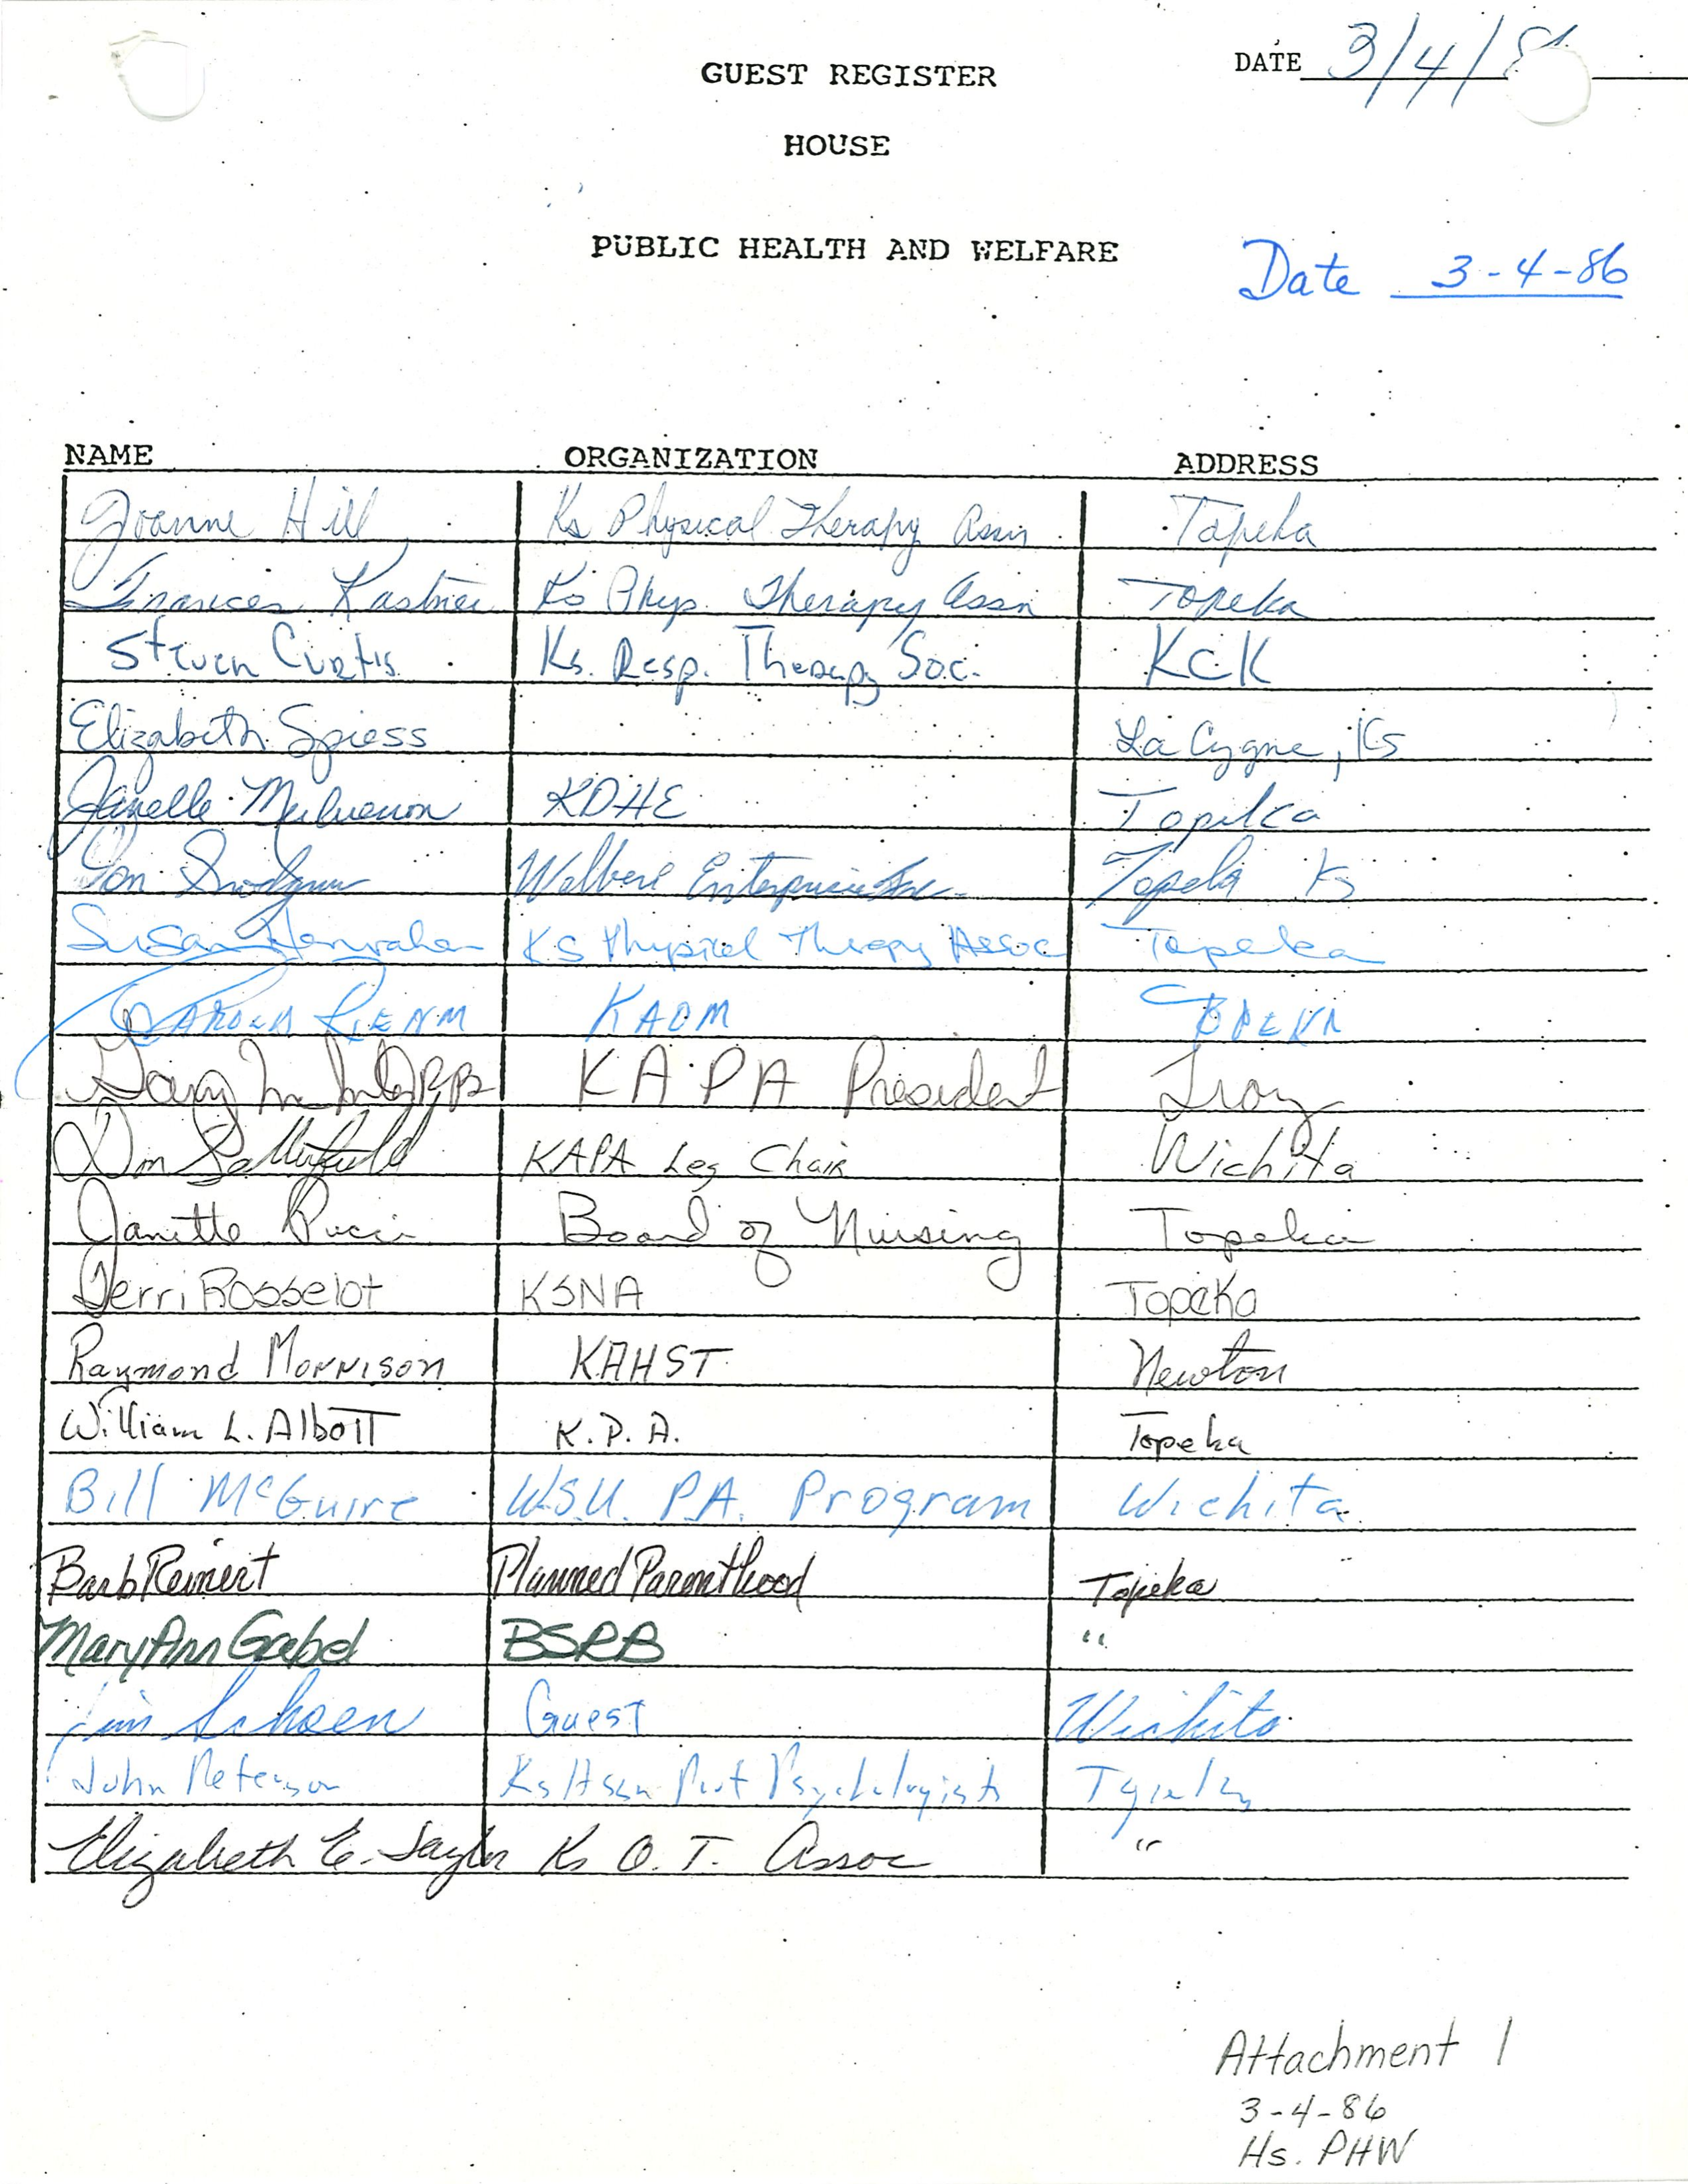 DATE 3/4/8
GUEST REGISTER
HOUSE
PUBLIC HEALTH AND WELFARE
Date 3-4-86
NAME ORGANIZATION ADDRESS
Joanne Hill Ks Physical Therapy Assn Topeka
Frances Kastner Ks Phys. Therapy Assn Topeka
Steven Curtis Ks. Resp. Therapy Soc. KCK
Elizabeth Spiess La Cygne, Ks
Janelle Mulvenon KDHE Topeka
Enterprises Inc. Topeka Ks
Susan Hanrahan KS Physical Therapy Assoc Topeka
KAOM TOPEKA
Gary KAPA President Troy
Satterfield KAPA Leg Chair Wichita
Janette Pucci Board of Nursing Topeka
Terri Rosselot KSNA Topeka
Raymond Morrison KAHST Newton
William L. Albott K.P.A. Topeka
Bill McGuire W.S.U. P.A. Program Wichita
Barb Reinert Planned Parenthood Topeka
Mary Ann Gabel BSRB "
Jim Schoen Guest Wichita
John Peterson Ks Assn Prof Psychologists Topeka
Elizabeth E. Taylor Ks O. T. Assoc "
Attachment 1
3-4-86
Hs. PHW